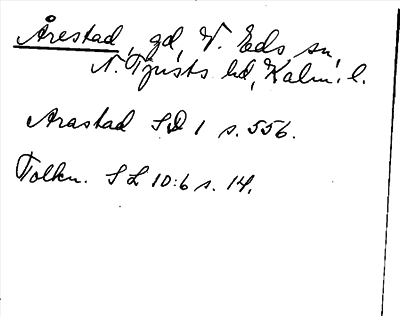 Årestad, gd, V. Eds sn,
N. Tjusts hd, Kalm. l.
Arastad SD 1 s. 556.
Tolkn. SL 10:6 s. 14.